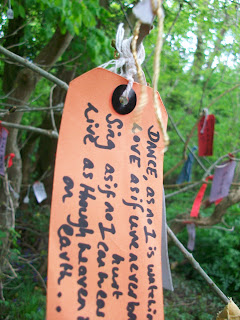 DANCE as no 1 is
LOVE as if uve never
hurt
Sing as if no 1 can hear
Live as though heaven
on Earth...